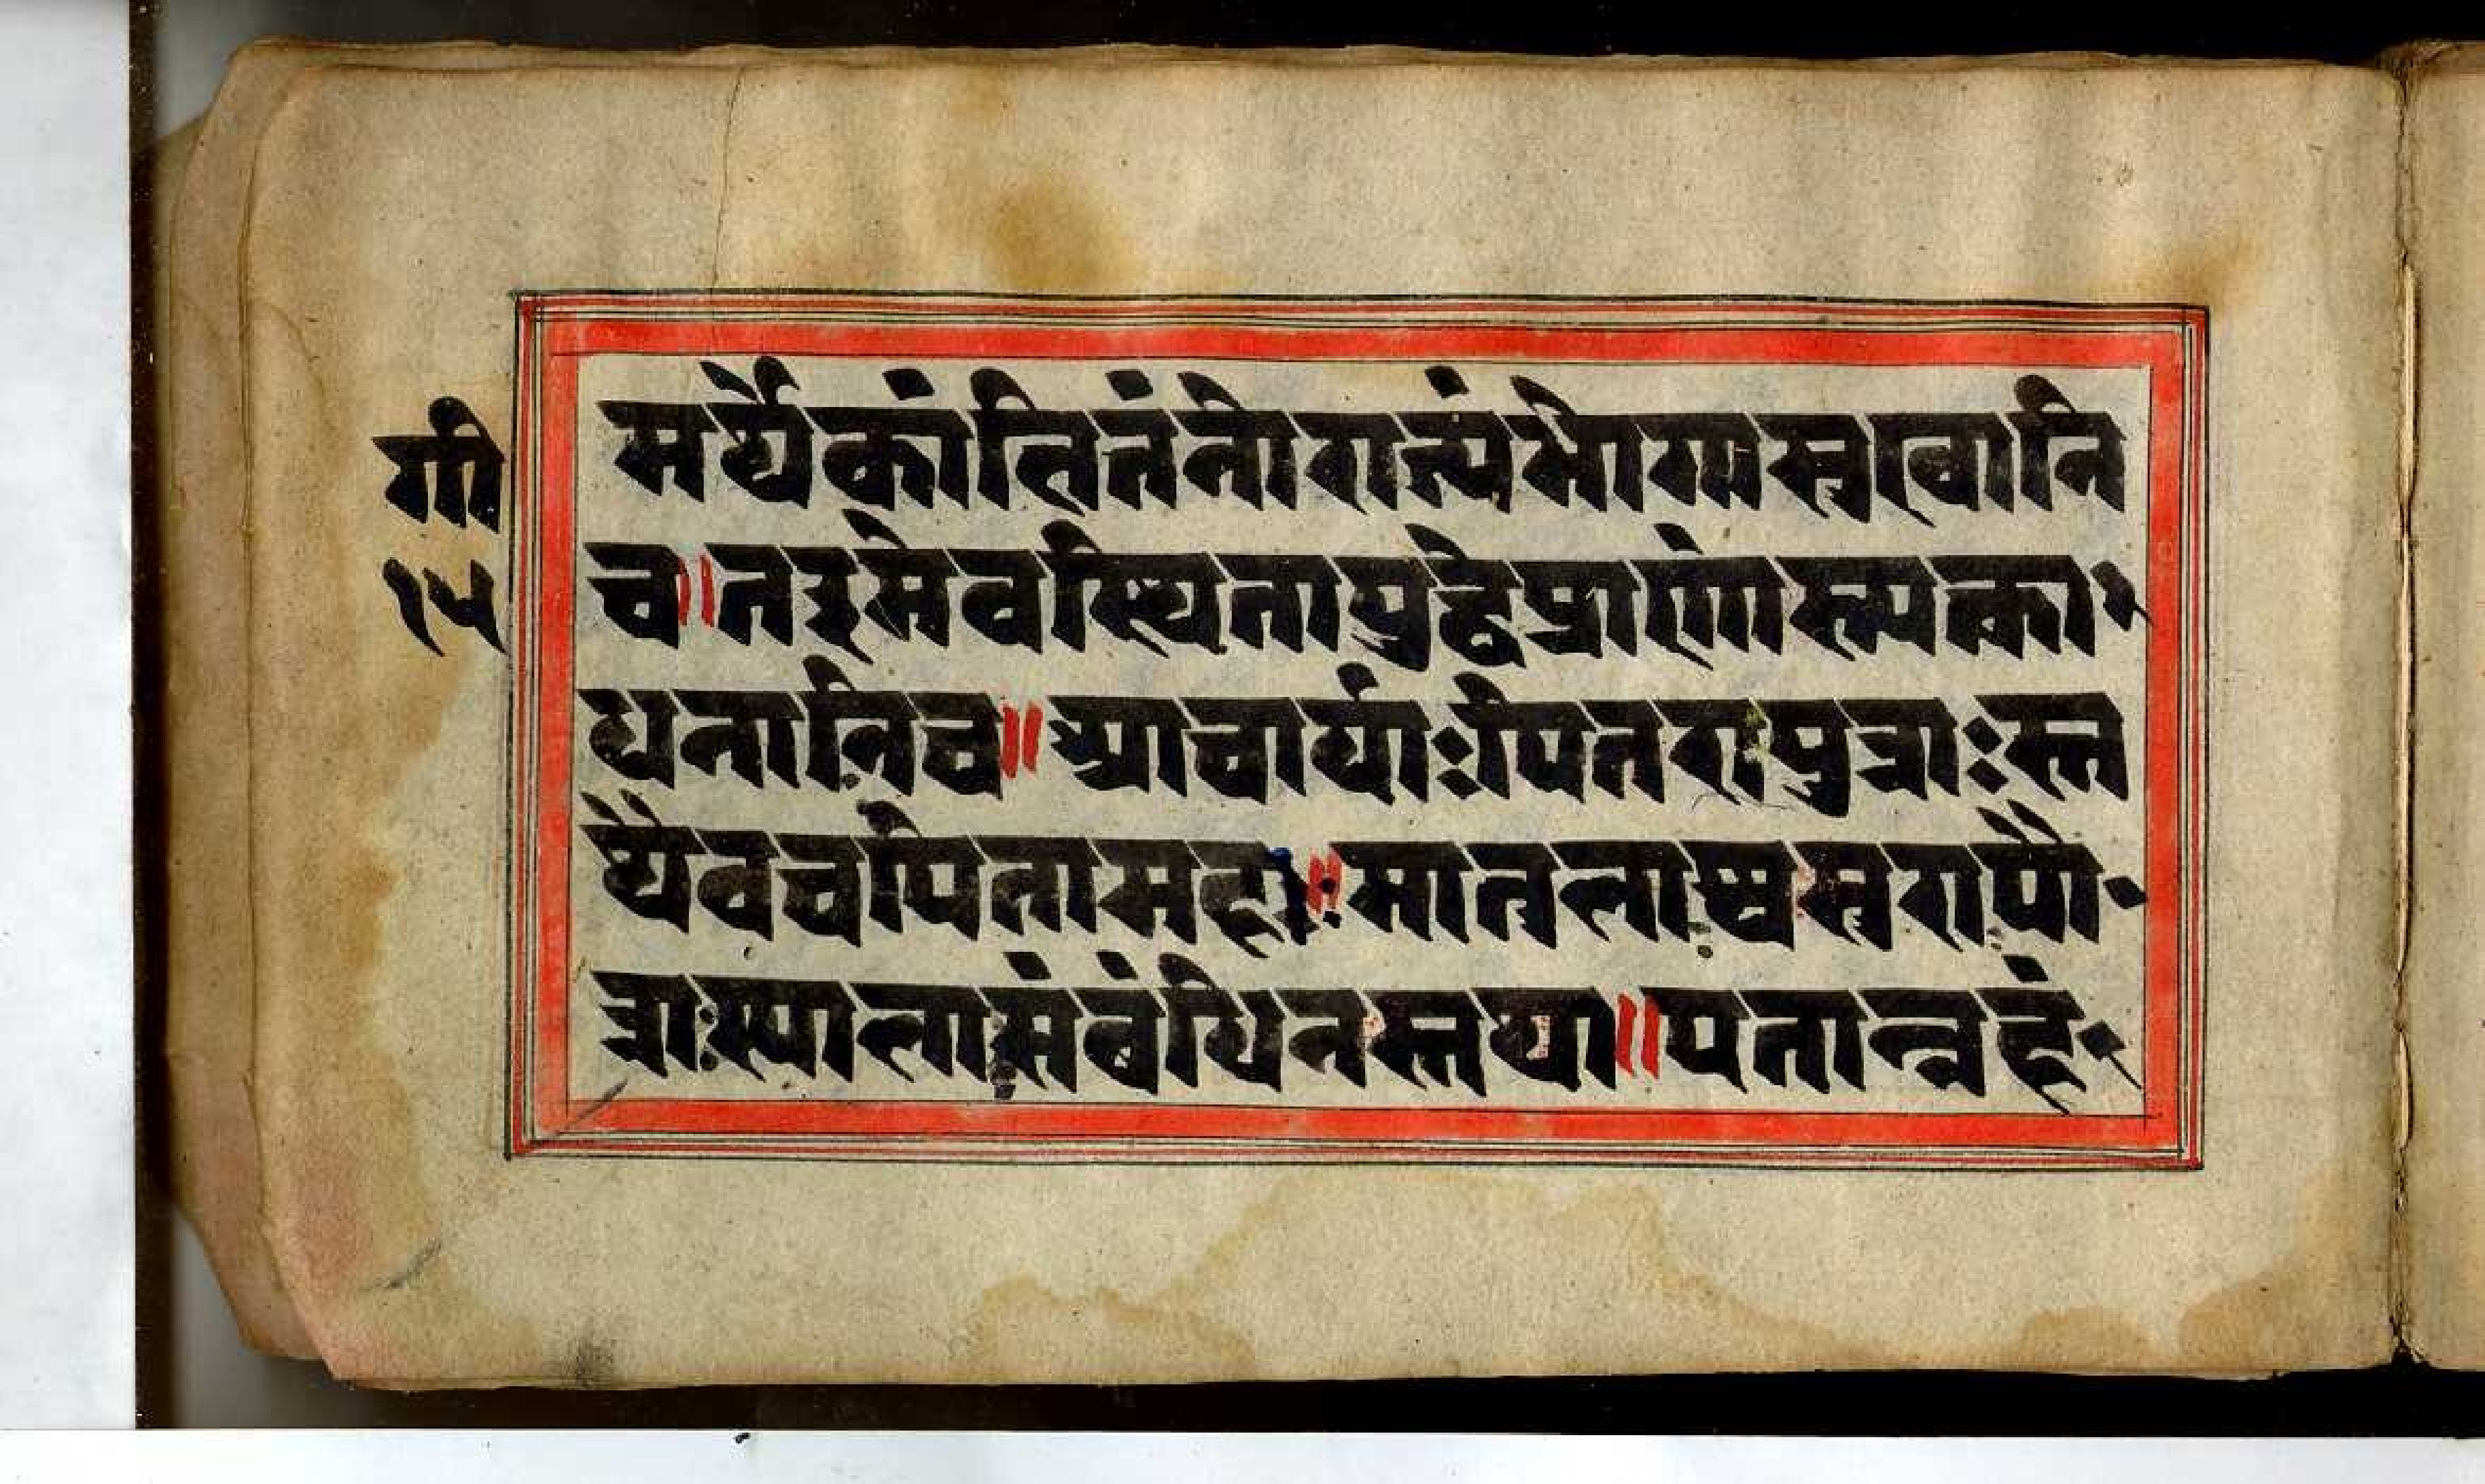 गी
१५
मर्थेकांतितंनोराज्यंभोगास्सुखानि
च॥तइमेवस्थितायुद्धेप्राणांस्त्यक्ता
धनानिच॥आचार्याःपितरःपुत्राःस्त
थैवचपितामहाः॥मातुलाश्वसुराःपौ
त्राःस्यालाःसंबंधिनस्तथा॥एतान्नहं